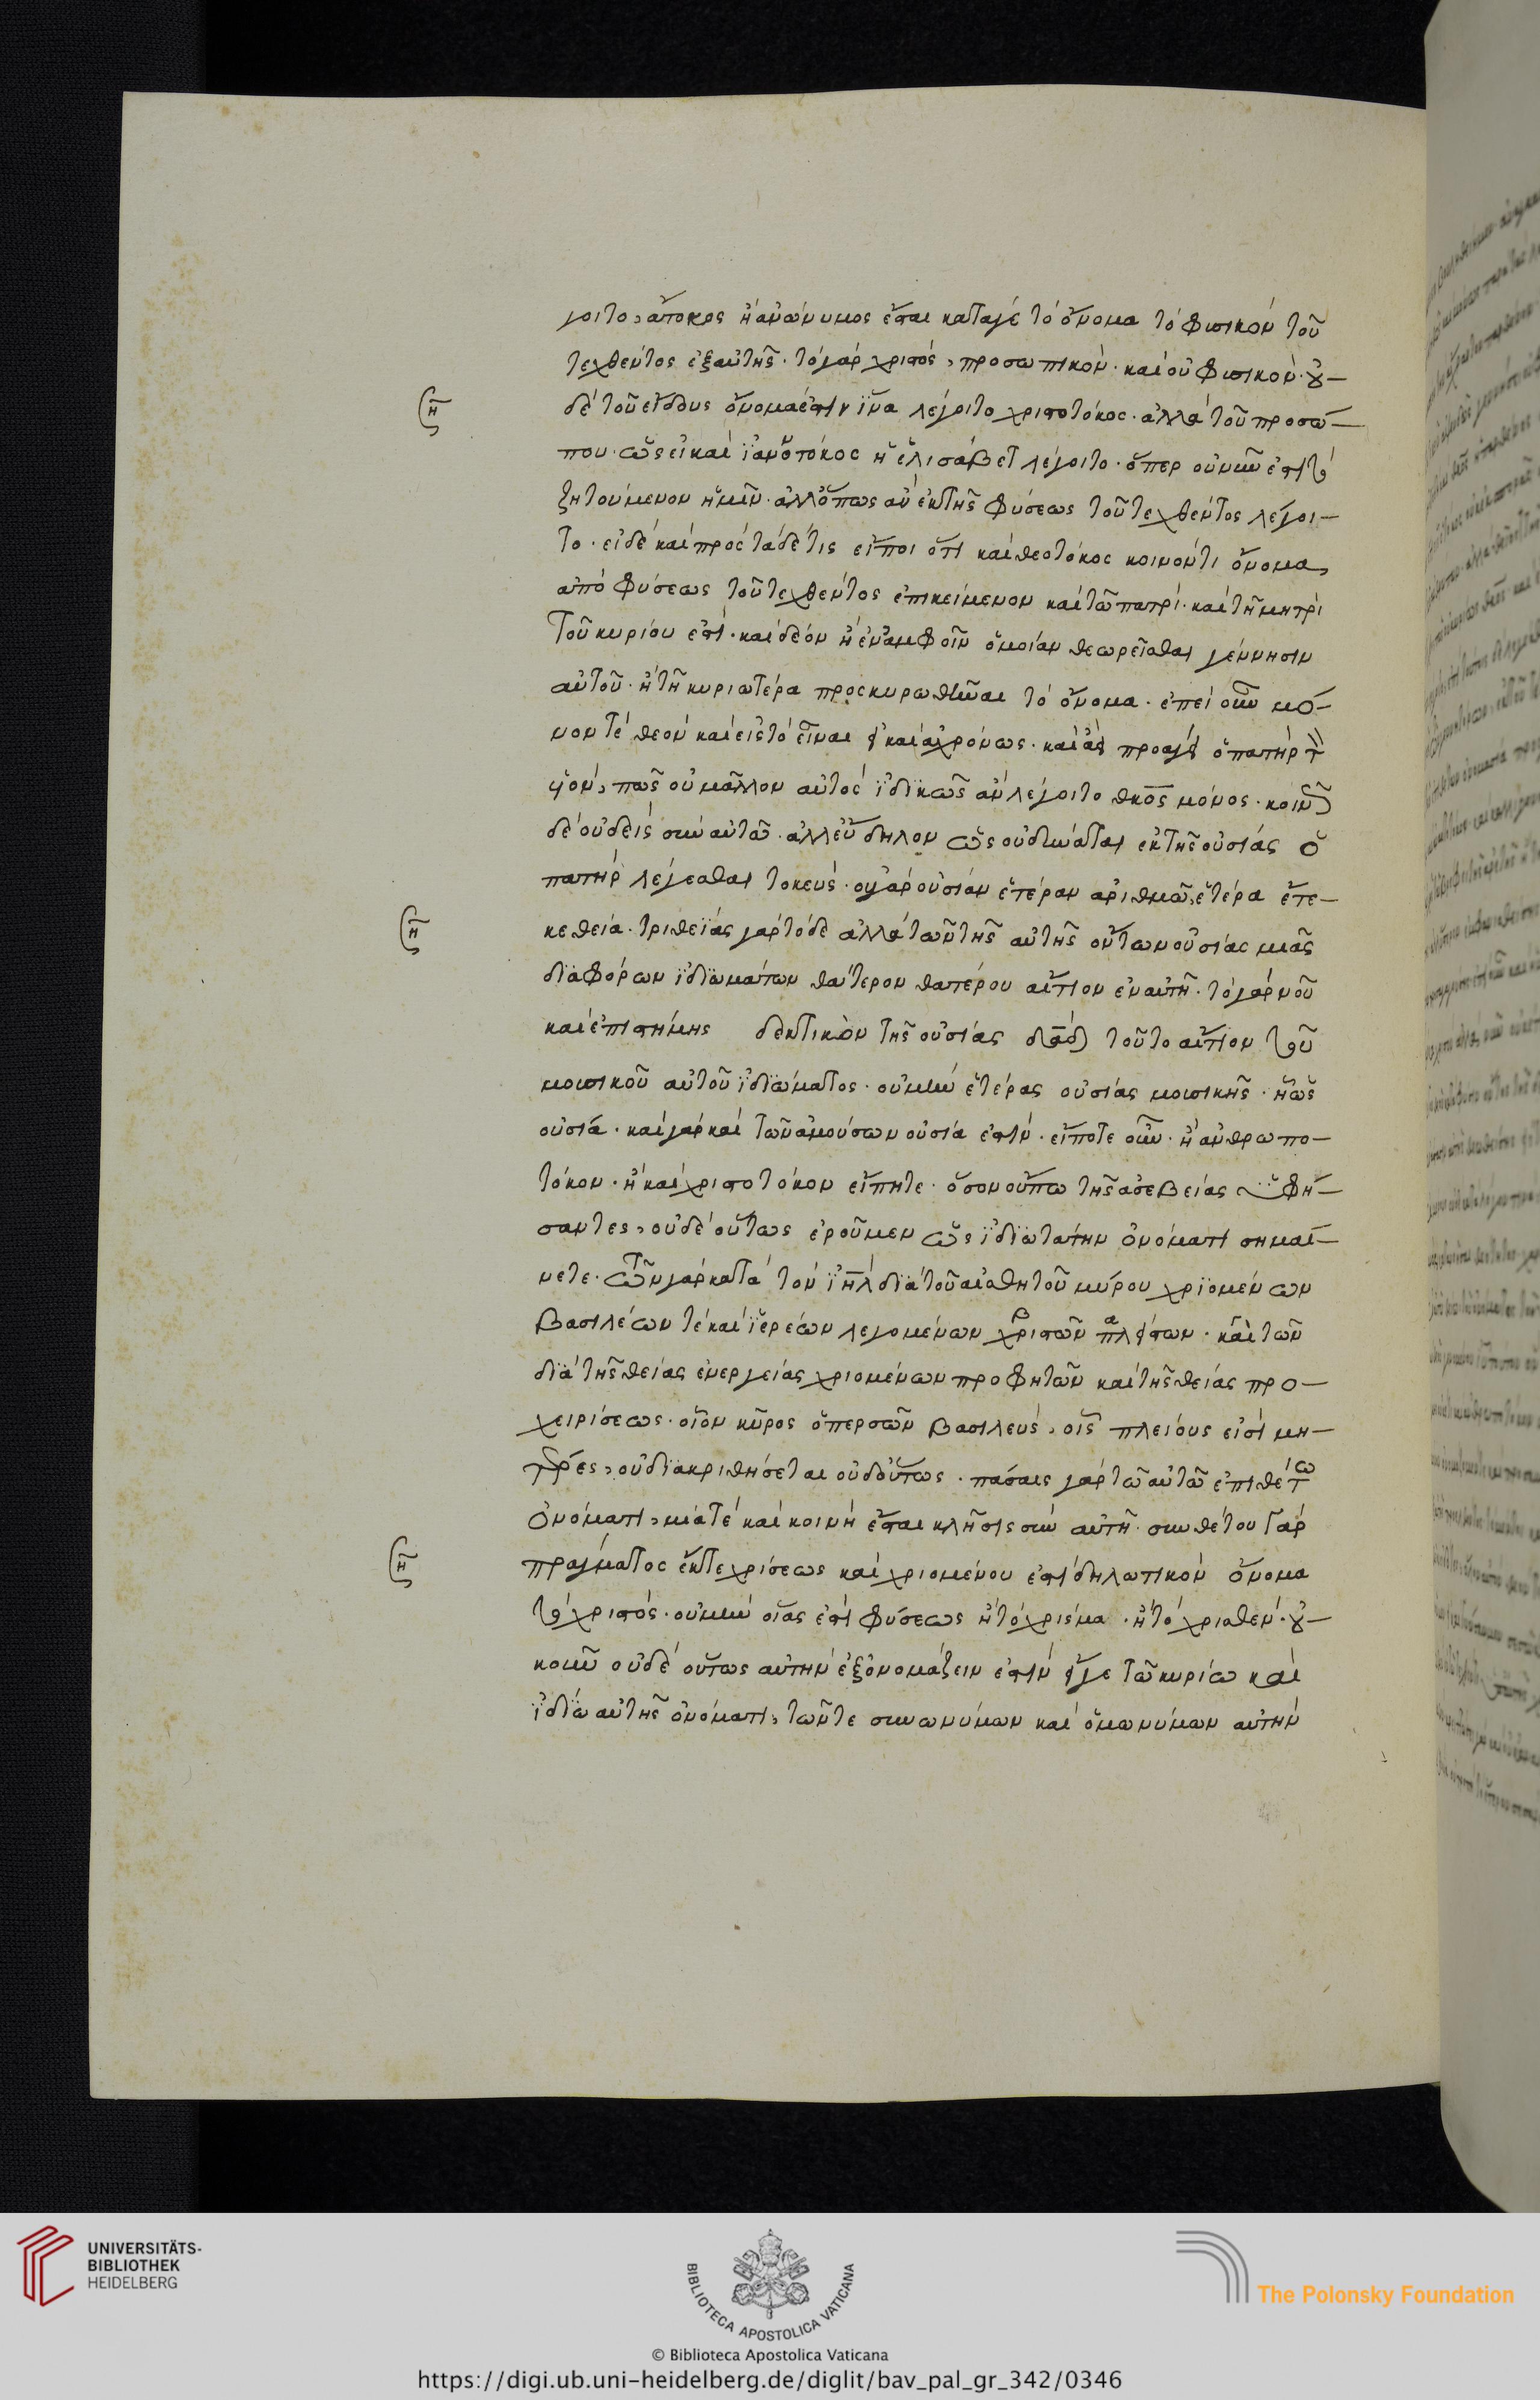 γοιτο, ἄτοκος ἢ ἀνώνυμος ἔσται κατά γε τὸ ὄνομα τὸ φυσικὸν τοῦ
τεχθέντος ἐξ αὐτῆς · τὸ γὰρ χριστὸς, προσωπικὸν · καὶ οὐ φυσικὸν · οὐ-
δὲ τοῦ εἴδους ὄνομα ἐστὶν ἵνα λέγοιτο χριστοτόκος · ἀλλὰ τοῦ προσώ-
που · ὡς εἰ καὶ ἰανοτόκος ἡ ἐλισάβετ λέγοιτο · ὅπερ οὐ νῦν ἐστὶ τὸ
ζητούμενον ἡμῖν · ἀλλ' ὅπως ἂν ἐκ τῆς φύσεως τοῦ τεχθέντος λέγοι-
το · εἰ δὲ καὶ πρὸς τάδε τις εἴποι ὅτι καὶ θεοτόκος κοινόν τι ὄνομα,
ἀπὸ φύσεως τοῦ τεχθέντος ἐπικείμενον καὶ τῶ πατρὶ · καὶ τῆ μητρὶ
τοῦ κυρίου ἐστὶ · καὶ δέον ἢ ἐν ἀμφοῖν ὁμοίαν θεωρεῖσθαι γέννησιν
αὐτοῦ · ἢ τῆ κυριωτέρα προσκυρωθῆναι τὸ ὄνομα · ἐπεὶ οὖν μό-
νον τὲ θεὸν καὶ εἰς τὸ εἶναι καὶ ἀχρόνως · καὶ προάγει ὁ πατὴρ τ
υἱὸν, πῶς οὐ μᾶλλον αὐτὸς ἰδϊκῶς ἂν λέγοιτο θκος μόνος · κοινῶς
δὲ οὐδεὶς σὺν αὐτῶ · ἀλλ' εὔδηλον ὡς οὐ δύναται ἐκ τῆς οὐσίας ὁ
πατὴρ λέγεσθαι τοκεύς · οὐ γὰρ οὐσίαν ἑτέραν ἀριθμῶ, ἑτέρα ἔτε-
κε θεία · τριθεΐας γὰρ τόδε ἀλλὰ τῶν τῆς αὐτῆς ὄντων οὐσίας μιᾶς
διαφόρων ἰδιωμάτων θάτερον θατέρου αἴτιον ἐν αὐτῆ · τὸ γὰρ νοῦ
καὶ ἐπιστήμης δεκτικὸν τῆς οὐσίας δαδ τοῦτο αἴτιον τοῦ
μουσικοῦ αὐτοῦ ἰδιώματος · οὐ μὴν ἑτέρας οὐσίας μουσικῆς · ἢ ὡς
οὐσία · καὶ γὰρ καὶ τῶν ἀμούσων οὐσία ἐστὶν · εἴποτε οὖν · ἢ ἀνθρωπο-
τόκον · ἢ καὶ χριστοτόκον εἴπητε · ὅσον οὔπω τῆς ἀσεβείας ὑφή-
σαντες, οὐδὲ οὕτως ἐροῦμεν ὡς ἰδιωτάτην ὀνόματι σημαί-
νετε · τῶν γὰρ κατὰ τὸν ἰηλ διὰ τοῦ αἰσθητοῦ μύρου χριομένων
βασιλέων τὲ καὶ ἱερέων λεγομένων χριστῶν πλείστων · καὶ τῶν
διὰ τῆς θείας ἐνεργείας χριομένων προφητῶν καὶ τῆς θείας προ-
χειρίσεως · οἷον κῦρος ὁ περσῶν βασιλεὺς, οἷς πλείους εἰσὶ μη-
τέρες, οὐ διακριθήσεται οὐδ' οὕτως · πάσαις γὰρ τῶ αὐτῶ ἐπιθέτω
ὀνόματι, μία τὲ καὶ κοινὴ ἔσται κλῆσις σὺν αὐτῆ · συνθέτου γὰρ
πράγματος ἔκ τε χρίσεως καὶ χριομένου ἐστὶ δηλωτικὸν ὄνομα
τὸ χριστός · οὐ μὴν οἵας ἐστὶ φύσεως ἢ τὸ χρίσμα · ἢ τὸ χρισθέν · οὐ-
κοῦν οὐδὲ οὕτως αὐτὴν ἐξονομάζειν ἐστὶν εἴγε τῶ κυρίω καὶ
ἰδίω αὐτῆς ὀνόματι, τῶν τε συνωνύμων καὶ ὁμωνύμων αὐτὴν
UNIVERSITÄTS-
BIBLIOTHEK
HEIDELBERG
BIBLIOTECA APOSTOLICA VATICANA
The Polonsky Foundation
© Biblioteca Apostolica Vaticana
https://digi.ub.uni-heidelberg.de/diglit/bav_pal_gr_342/0346